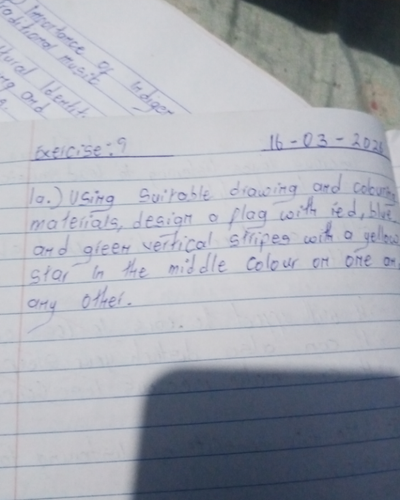 Importance of Indigen
Traditional music
tural Identity
ng and
Exercise: 9 16-03-202
1a.) Using suitable drawing and colouring
materials, design a flag with red, blue
and green vertical stripes with a yellow
star in the middle colour on one or
any other.